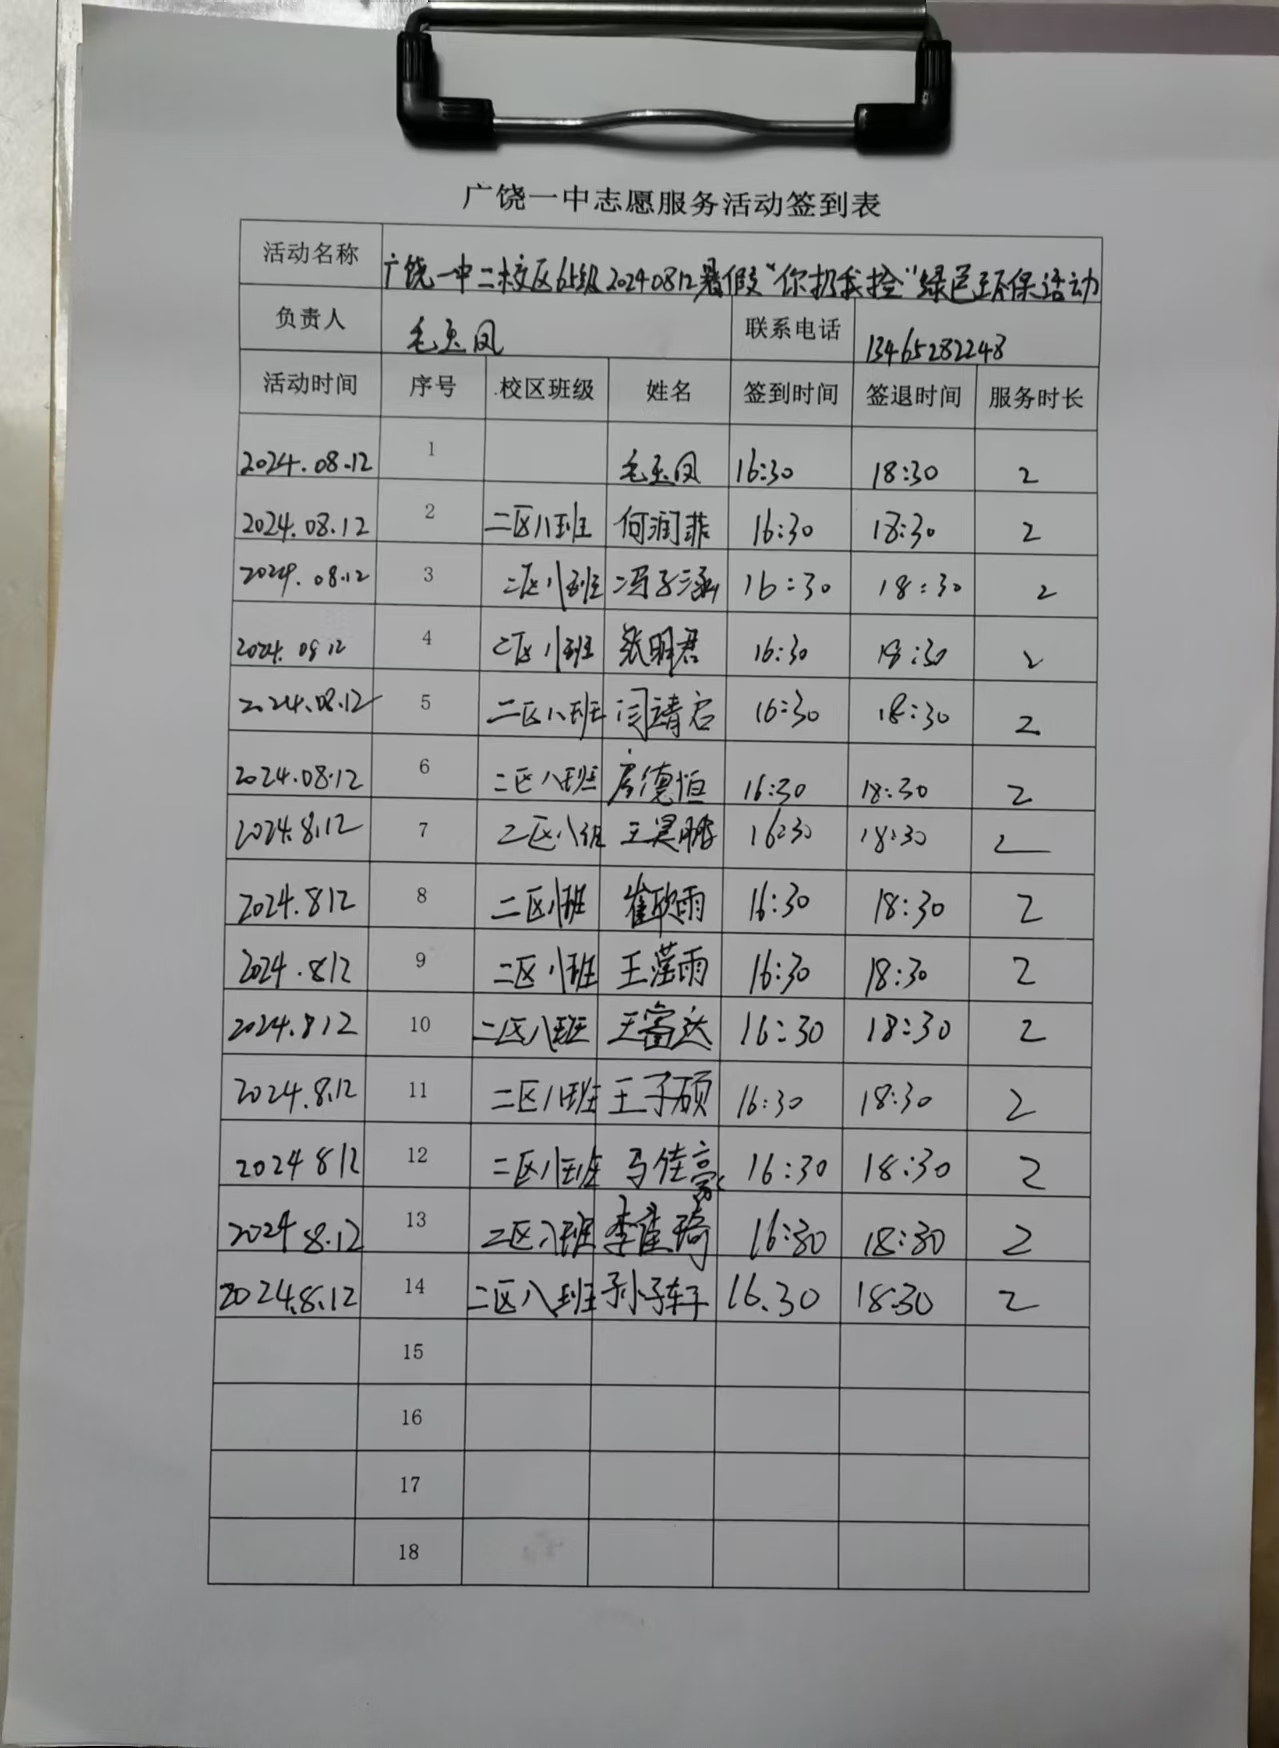 广饶一中志愿服务活动签到表
活动名称 广饶一中二校区65级20240812暑假"你扔我捡"绿色环保活动
负责人 毛玉凤 联系电话 13465282248
活动时间 序号 校区班级 姓名 签到时间 签退时间 服务时长
2024.08.12 1 毛玉凤 16:30 18:30 2
2024.08.12 2 二区八班 何润菲 16:30 18:30 2
2024.08.12 3 二区八班 冯子涵 16:30 18:30 2
2024.08.12 4 二区八班 张明君 16:30 18:30 2
2024.08.12 5 二区八班 闫靖启 16:30 18:30 2
2024.08.12 6 二区八班 房德恒 16:30 18:30 2
2024.8.12 7 二区八班 王昊鹏 16:30 18:30 2
2024.812 8 二区八班 崔欣雨 16:30 18:30 2
2024.812 9 二区八班 王滢雨 16:30 18:30 2
2024.812 10 二区八班 王富达 16:30 18:30 2
2024.8.12 11 二区八班 王子硕 16:30 18:30 2
2024 812 12 二区八班 马佳豪 16:30 18:30 2
2024 8.12 13 二区八班 李隹琦 16:30 18:30 2
2024.8.12 14 二区八班 孙子轩 16.30 18:30 2
15
16
17
18